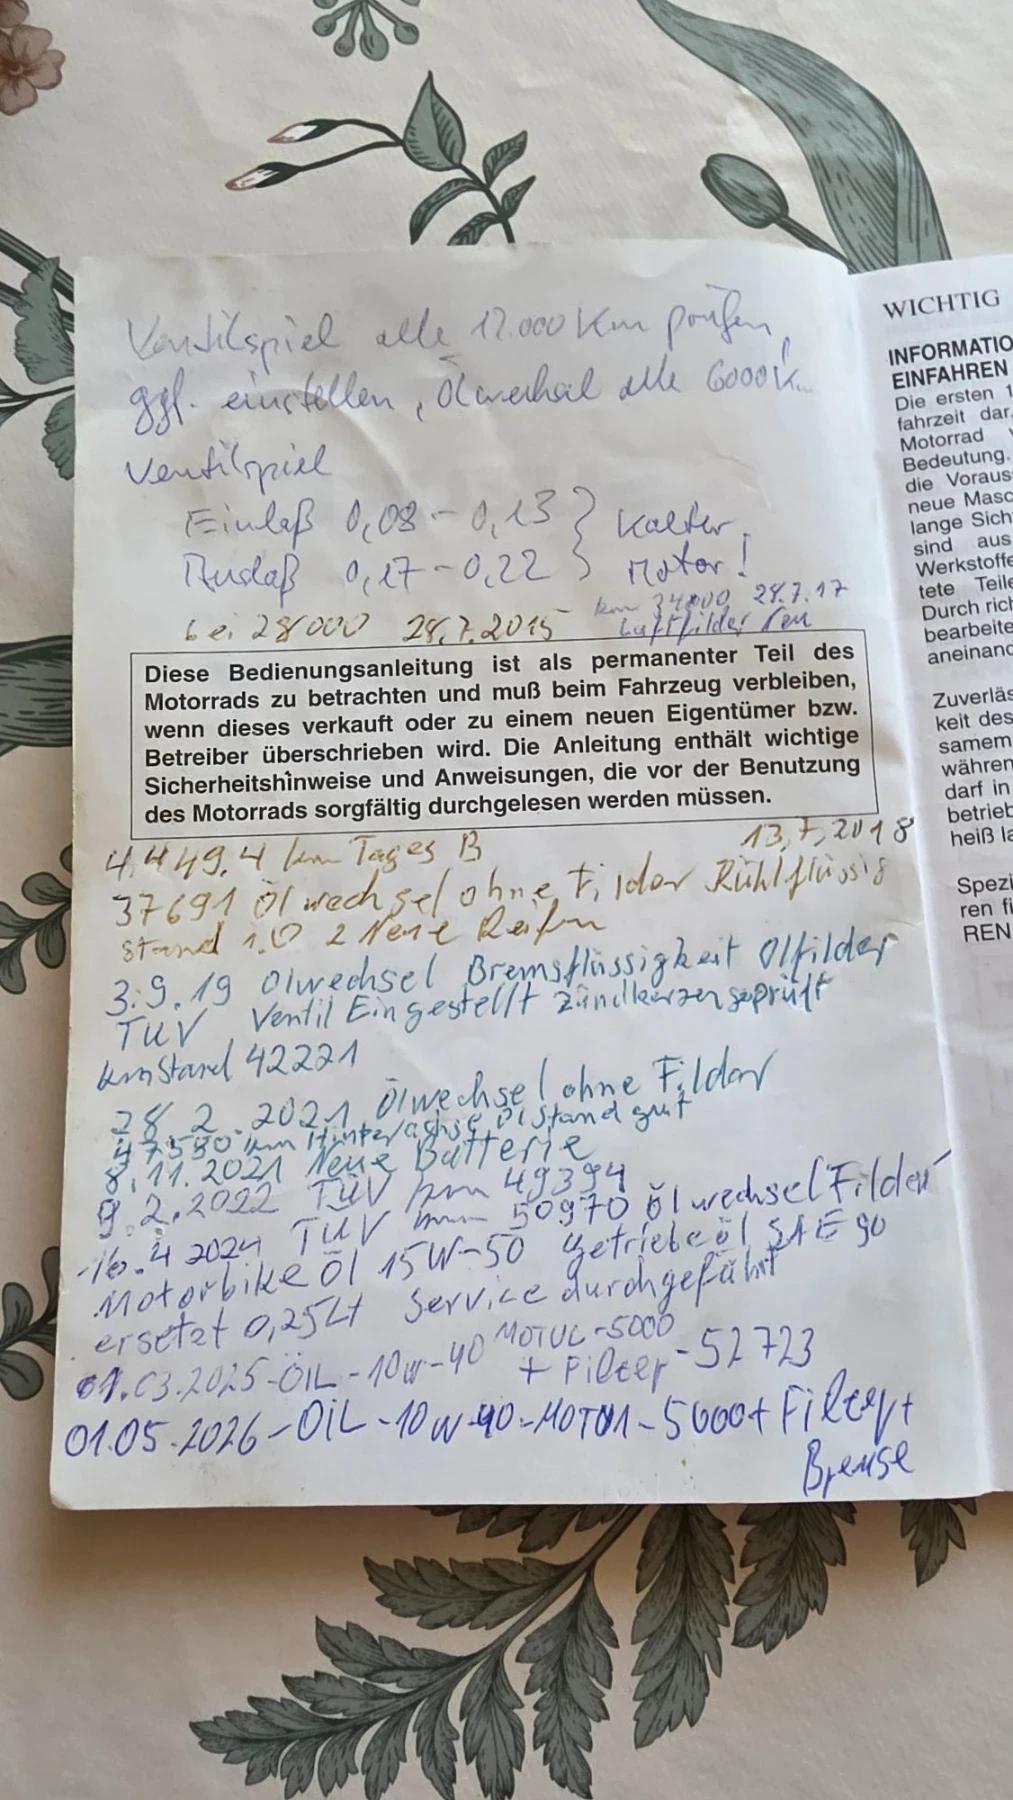 Ventilspiel alle 12.000 Km prüfen,
ggf. einstellen, Ölwechsel alle 6000 Km
Ventilspiel
Einlaß 0,08 - 0,13 } kalter
Auslaß 0,17 - 0,22 } Motor!
km 34000 28.7.17
bei 28000 28.7.2015 Luftfilder Neu
Diese Bedienungsanleitung ist als permanenter Teil des
Motorrads zu betrachten und muß beim Fahrzeug verbleiben,
wenn dieses verkauft oder zu einem neuen Eigentümer bzw.
Betreiber überschrieben wird. Die Anleitung enthält wichtige
Sicherheitshinweise und Anweisungen, die vor der Benutzung
des Motorrads sorgfältig durchgelesen werden müssen.
13,7,2018
4,449,4 km Tages B
37691 Ölwechsel ohne Filder Kühlflüssig
stand 1.0 2 Neue Reifen
3.9.19 Ölwechsel Bremsflüssigkeit Ölfilder
TUV Ventil Eingestellt Zündkerzen geprüft
km Stand 42221
28.2.2021 Ölwechsel ohne Filder
47550 km Hinterachse Ölstand gut
8.11.2021 Neue Batterie
9.2.2022 TÜV km 49394
16.4 2024 TUV km 50970 Ölwechsel Filder
Motorbike Öl 15W-50 Getriebeöl SAE 90
ersetzt 0,25Lt Service durchgeführt
01.03.2025-ÖIL-10W-40 MOTUL-5000
+ Filter-52723
01.05.2026-OIL-10W-40-MOTUL-5000+Filter+
Bremse
WICHTIG
INFORMATIO
EINFAHREN
Die ersten 1
fahrzeit dar.
Motorrad
Bedeutung.
die Voraus
neue Masc
lange Sich
sind aus
Werkstoffe
tete Teile
Durch rich
bearbeite
aneinand
Zuverläs
keit des
samem
währen
darf in
betrieb
heiß la
Spezi
ren fi
REN